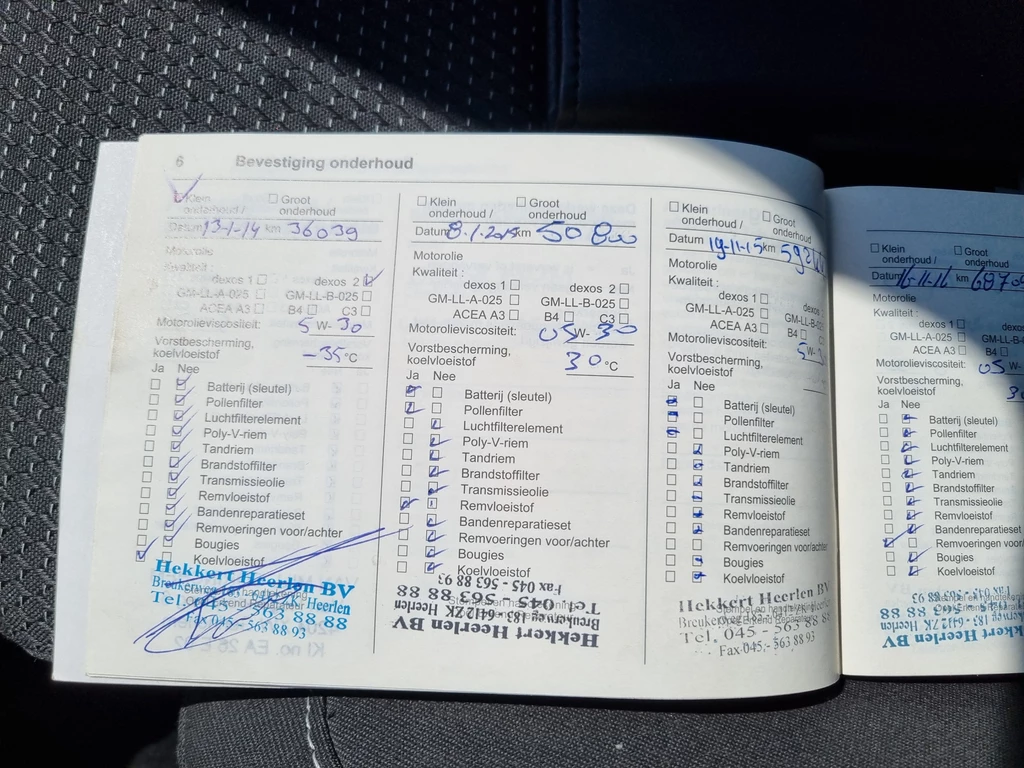 6 Bevestiging onderhoud
Klein onderhoud /
Groot onderhoud
Datum 13-1-14 km 36039
Motorolie
Kwaliteit :
dexos 1 dexos 2
GM-LL-A-025 GM-LL-B-025
ACEA A3 B4 C3
Motorolieviscositeit: 5 W- 30
Vorstbescherming,
koelvloeistof -35 °C
Ja Nee
Batterij (sleutel)
Pollenfilter
Luchtfilterelement
Poly-V-riem
Tandriem
Brandstoffilter
Transmissieolie
Remvloeistof
Bandenreparatieset
Remvoeringen voor/achter
Bougies
Koelvloeistof
Hekkert Heerlen BV
Breukerweg 183, 6412ZK Heerlen
Tel. 045 - 563 88 88
Fax 045 - 563 88 93
Klein onderhoud /
Groot onderhoud
Datum 8.1.2015 km 50 800
Motorolie
Kwaliteit :
dexos 1 dexos 2
GM-LL-A-025 GM-LL-B-025
ACEA A3 B4 C3
Motorolieviscositeit: 05 W- 30
Vorstbescherming,
koelvloeistof 30 °C
Ja Nee
Batterij (sleutel)
Pollenfilter
Luchtfilterelement
Poly-V-riem
Tandriem
Brandstoffilter
Transmissieolie
Remvloeistof
Bandenreparatieset
Remvoeringen voor/achter
Bougies
Koelvloeistof
Hekkert Heerlen BV
Breukerweg 183, 6412ZK Heerlen
Tel. 045 - 563 88 88
Fax 045 - 563 88 93
Klein onderhoud /
Groot onderhoud
Datum 19-11-15 km
Motorolie
Kwaliteit :
dexos 1
GM-LL-A-025
ACEA A3 B4
Motorolieviscositeit: 5 W-
Vorstbescherming,
koelvloeistof
Ja Nee
Batterij (sleutel)
Pollenfilter
Luchtfilterelement
Poly-V-riem
Tandriem
Brandstoffilter
Transmissieolie
Remvloeistof
Bandenreparatieset
Remvoeringen voor/achter
Bougies
Koelvloeistof
Hekkert Heerlen BV
Tel. 045 - 563 88 8
Fax 045 - 563 88 93
Klein onderhoud /
Groot onderhoud
Datum 16-11-16 km
Motorolie
Kwaliteit :
dexos 1
GM-LL-A-025
ACEA A3 B4
Motorolieviscositeit: 05 W-
Vorstbescherming,
koelvloeistof
Ja Nee
Batterij (sleutel)
Pollenfilter
Luchtfilterelement
Poly-V-riem
Tandriem
Brandstoffilter
Transmissieolie
Remvloeistof
Bandenreparatieset
Remvoeringen voor/
Bougies
Koelvloeistof